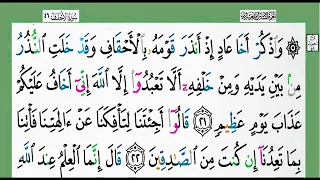 ۞ وَاذْكُرْ أَخَا عَادٍ إِذْ أَنذَرَ قَوْمَهُ بِالْأَحْقَافِ وَقَدْ خَلَتِ النُّذُرُ
مِنۢ بَيْنِ يَدَيْهِ وَمِنْ خَلْفِهِ أَلَّا تَعْبُدُوا إِلَّا اللَّهَ إِنِّي أَخَافُ عَلَيْكُمْ
عَذَابَ يَوْمٍ عَظِيمٍ ٢١ قَالُوا أَجِئْتَنَا لِتَأْفِكَنَا عَنْ ءَالِهَتِنَا فَأْتِنَا
بِمَا تَعِدُنَا إِن كُنتَ مِنَ الصَّادِقِينَ ٢٢ قَالَ إِنَّمَا الْعِلْمُ عِندَ اللَّهِ